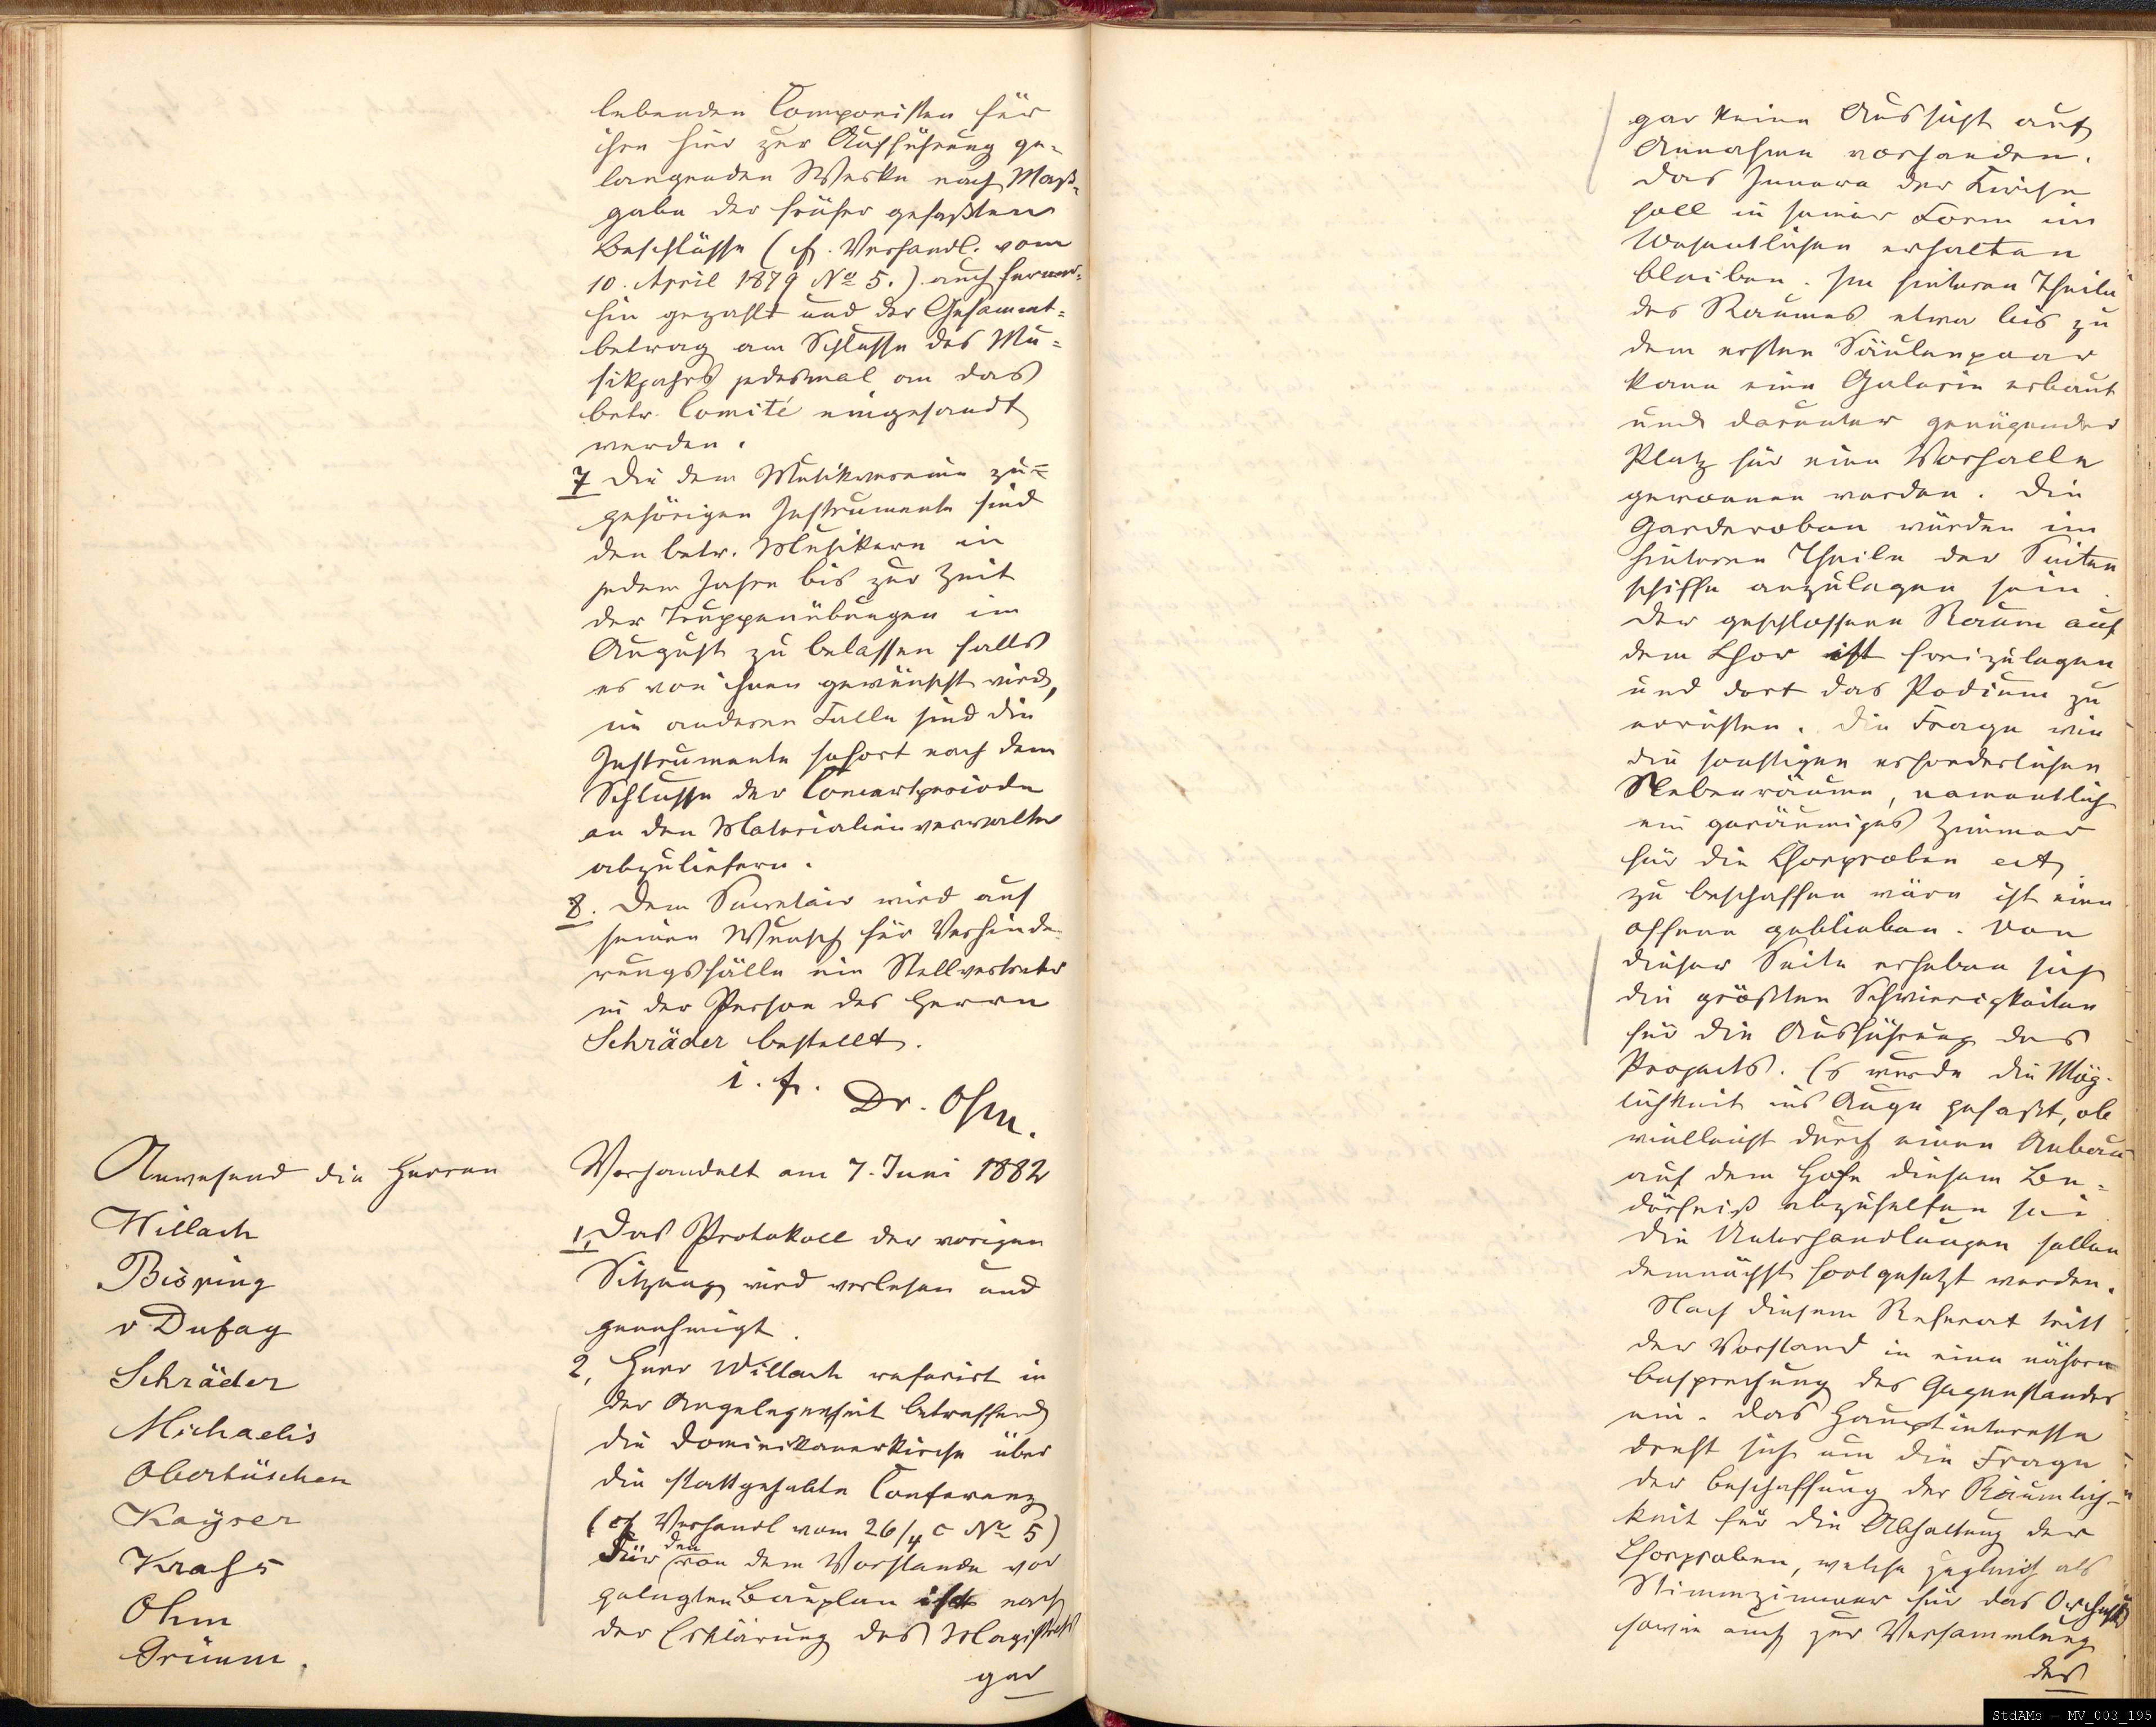 lebenden Componisten für
ihre hier zur Aufführung ge-
langenden Werke nach Maß-
gabe der früher gefaßten
Beschlüsse (cf. Verhandl. vom
10. April 1879 No 5.) auch ferner-
hin gezahlt und der Gesammt-
betrag am Schlusse des Mu-
sikjahrs jedesmal an das
betr. Comité eingesandt
werden.
7 Die dem Musikvereine zu-
gehörigen Instrumente sind
den betr. Musikern in
jedem Jahre bis zur Zeit
der Truppenübungen im
August zu belassen falls
es von ihnen gewünscht wird,
im anderen Falle sind die
Instrumente sofort nach dem
Schlusse der Concertperiode
an den Materialienverwalter
abzuliefern.
8. Dem Secretair wird auf
seinen Wunsch für Verhinde-
rungsfälle ein Stellvertreter
in der Person des Herrn
Schräder bestellt.
i. f.
Dr. Ohm.
Anwesend die Herren
Willach
Bisping
v Dufay
Schräder
Michaelis
Obertüschen
Kayser
Krahs
Ohm
Grimm.
Verhandelt am 7. Juni 1882
1, Das Protokoll der vorigen
Sitzung wird verlesen und
genehmigt.
2, Herr Willach referirt in
der Angelegenheit betreffend
die Dominikanerkirche über
die stattgehabte Conferenz
(cf Verhandl vom 26/4 c No 5)
Für den von dem Vorstande vor
gelegten Bauplan ist nach
der Erklärung des Magistrats
gar
gar keine Aussicht auf
Annahme vorhanden.
Das Innere der Kirche
soll in seiner Form im
Wesentlichen erhalten
bleiben. Im hinteren Theile
des Raumes etwa bis zu
dem ersten Säulenpaar
kann eine Galerie erbaut
und darunter genügender
Platz für eine Vorhalle
gewonnen werden. Die
Garderoben würden im
hinteren Theile der Seiten
schiffe anzulegen sein.
Der geschlossene Raum auf
dem Chor ist freizulegen
und dort das Podium zu
errichten. Die Frage wie
die sonstigen erforderlichen
Nebenräume, namentlich
ein geräumiges Zimmer
für die Chorproben ect
zu beschaffen wäre ist eine
offene geblieben. Von
dieser Seite erheben sich
die größten Schwierigkeiten
für die Ausführung des
Projects. Es wurde die Mög-
lichkeit ins Auge gefaßt, ob
vielleicht durch einen Anbau
auf dem Hofe diesem Be-
dürfniß abzuhelfen sei
Die Unterhandlungen sollen
demnächst fortgesetzt werden.
Nach diesem Referat tritt
der Vorstand in eine nähere
Besprechung des Gegenstandes
ein. Das Hauptinteresse
dreht sich um die Frage
der Beschaffung der Räumlich-
keit für die Abhaltung der
Chorproben, welche zugleich als
Stimmzimmer für das Orchester
sowie auch zur Versammlung
des
StdAMs - MV_003_195